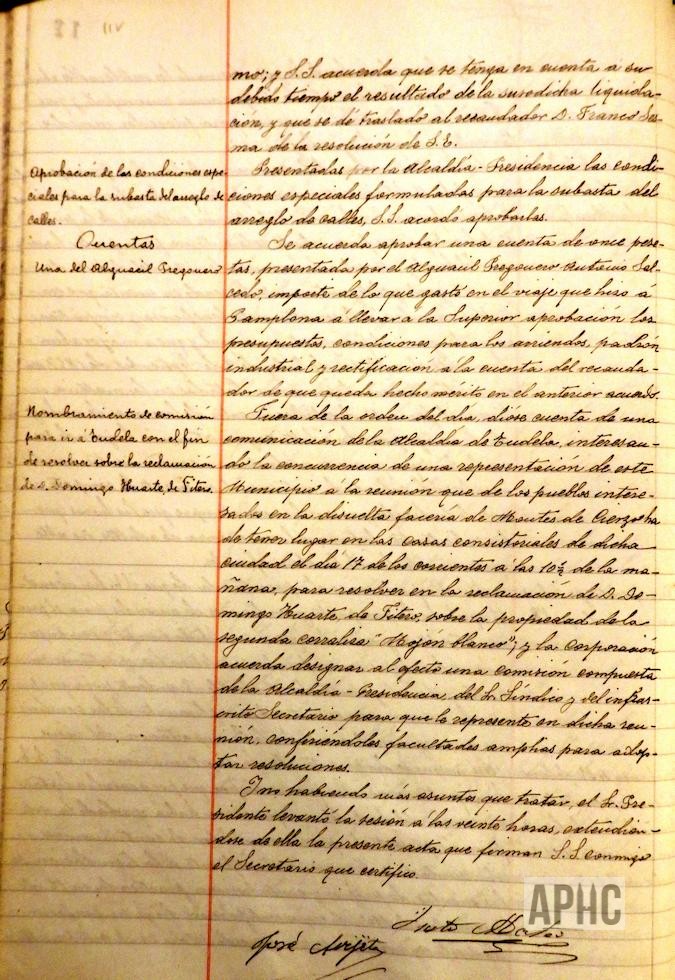 mo; y S.S. acuerda que se tenga en cuenta á su
debido tiempo el resultado de la susodicha liquida-
cion, y que se dé traslado al recaudador D. Franco Ses-
ma de la resolución de S.E.
Aprobación de las condiciones espe-
ciales para la subasta del arreglo de
calles.
Presentadas por la Alcaldía-Presidencia las condi-
ciones especiales formuladas para la subasta del
arreglo de calles, S.S. acordó aprobarlas.
Cuentas
Una del Alguacil Pregonero
Se acuerda aprobar una cuenta de once pese-
tas, presentada por el Alguacil Pregonero Antonio Sal-
cedo, importe de lo que gastó en el viaje que hizo á
Pamplona á llevar á la Superior aprobación los
presupuestos, condiciones para los arriendos, padrón
industrial y rectificación á la cuenta del recauda-
dor de que queda hecho mérito en el anterior acuerdo.
Nombramiento de comisión
para ir á Tudela con el fin
de resolver sobre la reclamación
de D. Domingo Huarte, de Fitero.
Fuera de la orden del día, dióse cuenta de una
comunicación de la Alcaldía de Tudela, interesan-
do la concurrencia de una representación de este
Municipio á la reunión que de los pueblos intere-
sados en la disuelta facería de Montes de Cierzo ha
de tener lugar en las casas consistoriales de dicha
ciudad el día 17 de los corrientes á las 10½ de la ma-
ñana, para resolver en la reclamación de D. Do-
mingo Huarte, de Fitero, sobre la propiedad de la
segunda corraliza "Mojón blanco"; y la corporación
acuerda designar al efecto una comisión compuesta
de la Alcaldía-Presidencia del Sr. Síndico y del infras-
crito Secretario para que la represente en dicha reu-
nión, confiriéndoles facultades amplias para adop-
tar resoluciones.
Y no habiendo más asuntos que tratar, el Sr. Pre-
sidente levantó la sesión á las veinte horas, extendién-
dose de ella la presente acta que firman S.S. conmigo
el Secretario que certifico.
José
APHC